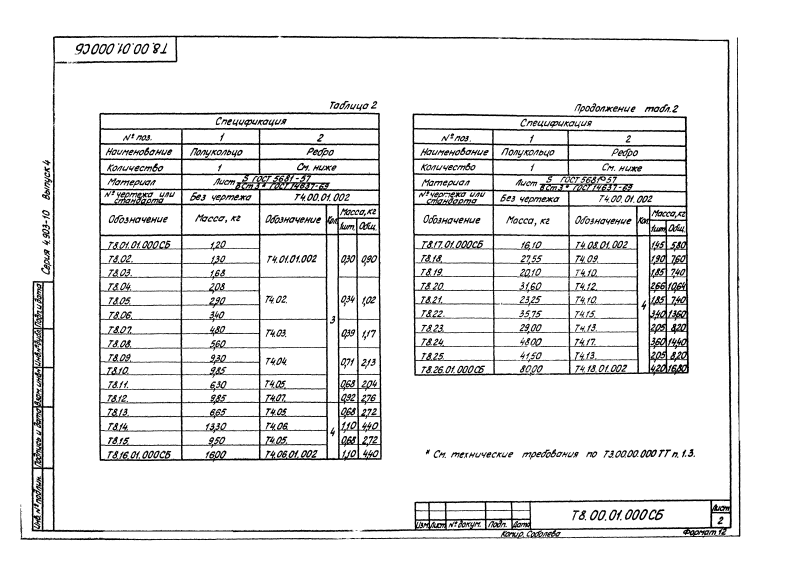 Т8.00.01.000СБ
Серия 4.903-10 Выпуск 4
Таблица 2
Спецификация
№ поз. 1 2
Наименование Полукольцо Ребро
Количество 1 См. ниже
Материал Лист 5 ГОСТ 5681-57 / ВСт3 * ГОСТ 14637-69
№ чертежа или стандарта Без чертежа Т4.00.01.002
Обозначение Масса, кг Обозначение Кол. Масса, кг
1шт. Общ.
Т8.01.01.000СБ 1,20 Т4.01.01.002 3 0,30 0,90
Т8.02. 1,30
Т8.03. 1,68
Т8.04. 2,08 Т4.02. 0,34 1,02
Т8.05. 2,90
Т8.06. 3,40
Т8.07. 4,80 Т4.03. 0,39 1,17
Т8.08. 5,60
Т8.09. 9,30 Т4.04. 0,71 2,13
Т8.10. 9,85
Т8.11. 6,30 Т4.05. 0,68 2,04
Т8.12. 9,85 Т4.07. 0,92 2,76
Т8.13. 6,65 Т4.05. 4 0,68 2,72
Т8.14. 13,30 Т4.06. 1,10 4,40
Т8.15. 9,50 Т4.05. 0,68 2,72
Т8.16.01.000СБ 16,00 Т4.06.01.002 1,10 4,40
Продолжение табл. 2
Спецификация
№ поз. 1 2
Наименование Полукольцо Ребро
Количество 1 См. ниже
Материал Лист 5 ГОСТ 5681-57 / ВСт3 * ГОСТ 14637-69
№ чертежа или стандарта Без чертежа Т4.00.01.002
Обозначение Масса, кг Обозначение Кол. Масса, кг
1шт. Общ.
Т8.17.01.000СБ 16,10 Т4.08.01.002 4 1,45 5,80
Т8.18. 27,55 Т4.09. 1,90 7,60
Т8.19. 20,10 Т4.10. 1,85 7,40
Т8.20. 31,60 Т4.12. 2,66 10,64
Т8.21. 23,25 Т4.10. 1,85 7,40
Т8.22. 35,75 Т4.15. 3,40 13,60
Т8.23. 29,00 Т4.13. 2,05 8,20
Т8.24. 48,00 Т4.17. 3,60 14,40
Т8.25. 41,50 Т4.13. 2,05 8,20
Т8.26.01.000СБ 80,00 Т4.18.01.002 4,20 16,80
* См. технические требования по Т3.00.00.000 ТТ п. 1.3.
Инв. № подлин. Подпись и дата Взам. инв. № Инв. № дубл. Подп. и дата
Изм. Лист № докум. Подп. Дата
Т8.00.01.000СБ
Лист
2
Копир. Соболева
Формат 12